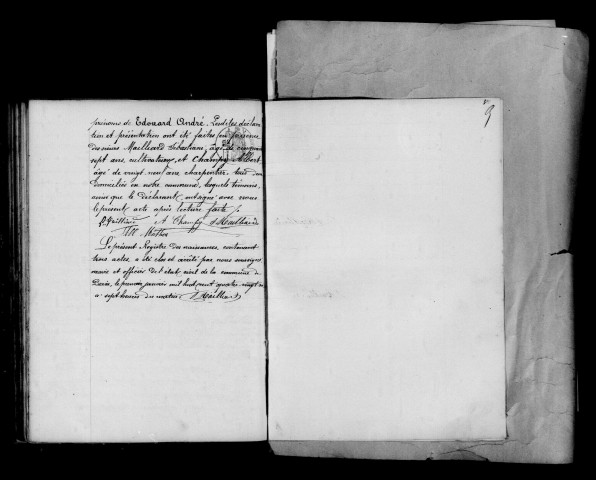 prénoms de Edouard André. Lesdites déclara
tion et présentation ont été faites en présence
des sieurs Mailleard Sébastiane, âgé de cinquante
sept ans, cultivateur, et Champy Albert
âgé de vingt neuf ans charpentier tous deux
domiciliés en notre commune, lesquels témoins,
ainsi que le déclarant, ont signé avec nous
le présent acte après lecture faite ;
et Champy
Le présent Registre des naissances, contenant
trois actes, a été clos et arrêté par nous soussigné
maire et officier de l'état civil de la commune de
le premier janvier mil huit cent quatre vingt
à sept heures du matin.
9